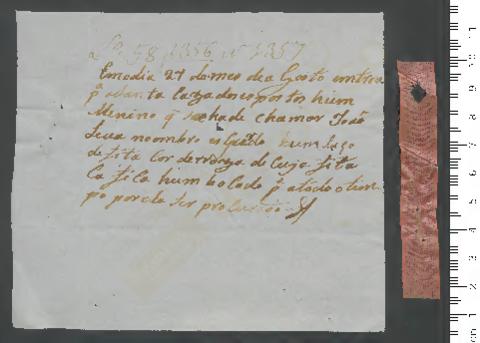 Lº 58 1356 nº 1357
Em o dia 27 do mes de a Gosto entrou
pª esta Sta caza de expostos hum
Menino q se ha de chamar João
Leva no ombro esqdo hum laço
de fita cor de roza de cuja fita
ca fica hum bocado pª a todo o tem
po porela ser procurado